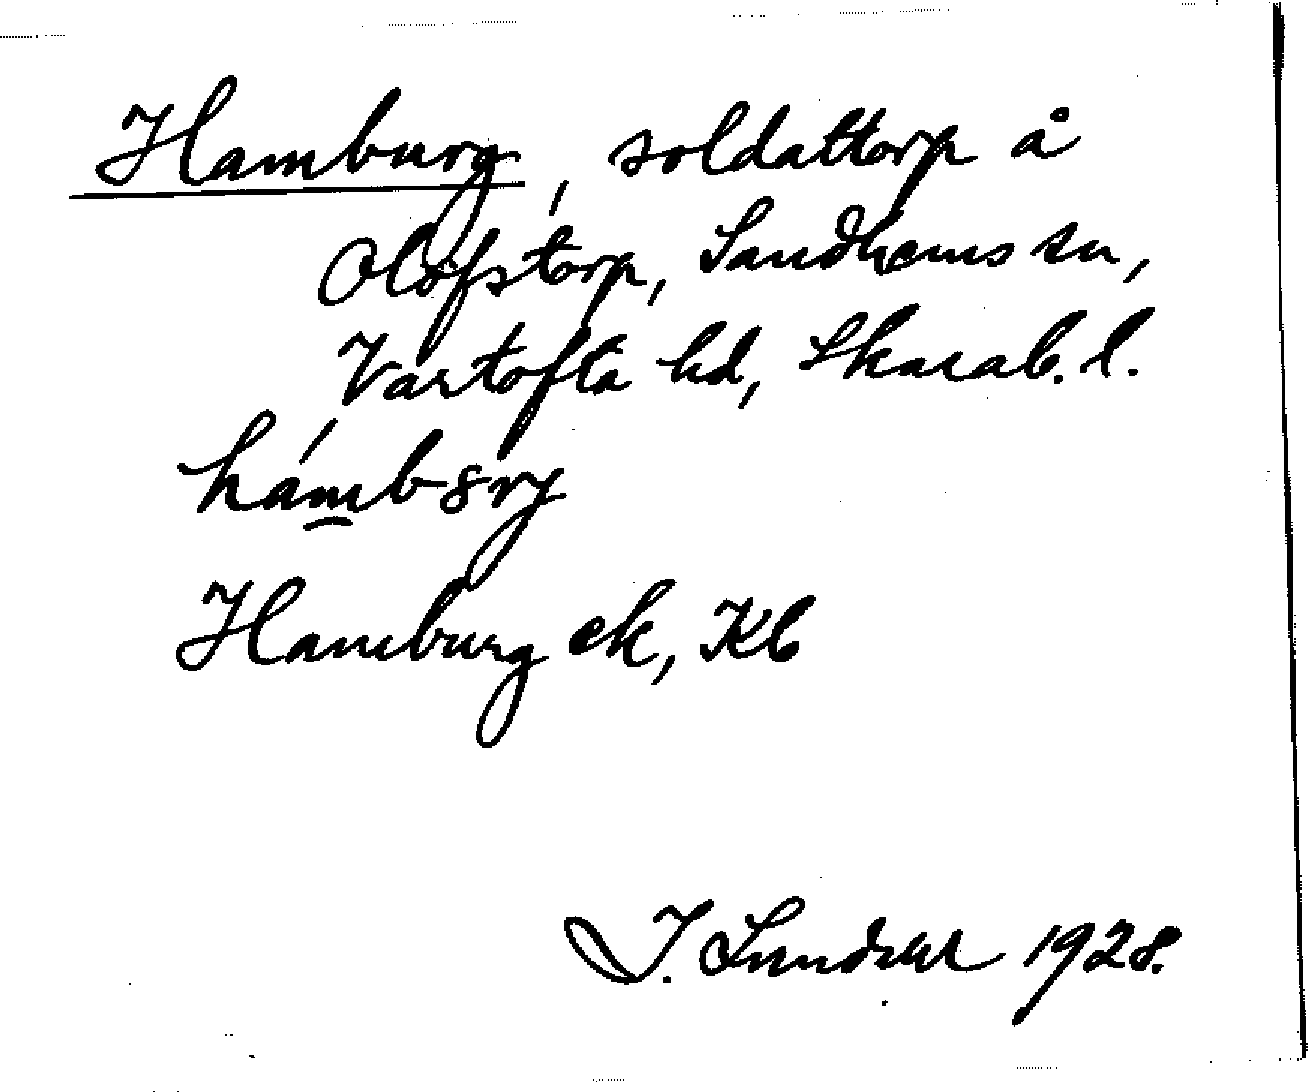 Hamburg, soldattorp å
Olofstorp, Sandhems sn,
Vartofta hd, Skarab. l.
Hamburg ek, Kb
I. Lundahl 1928.